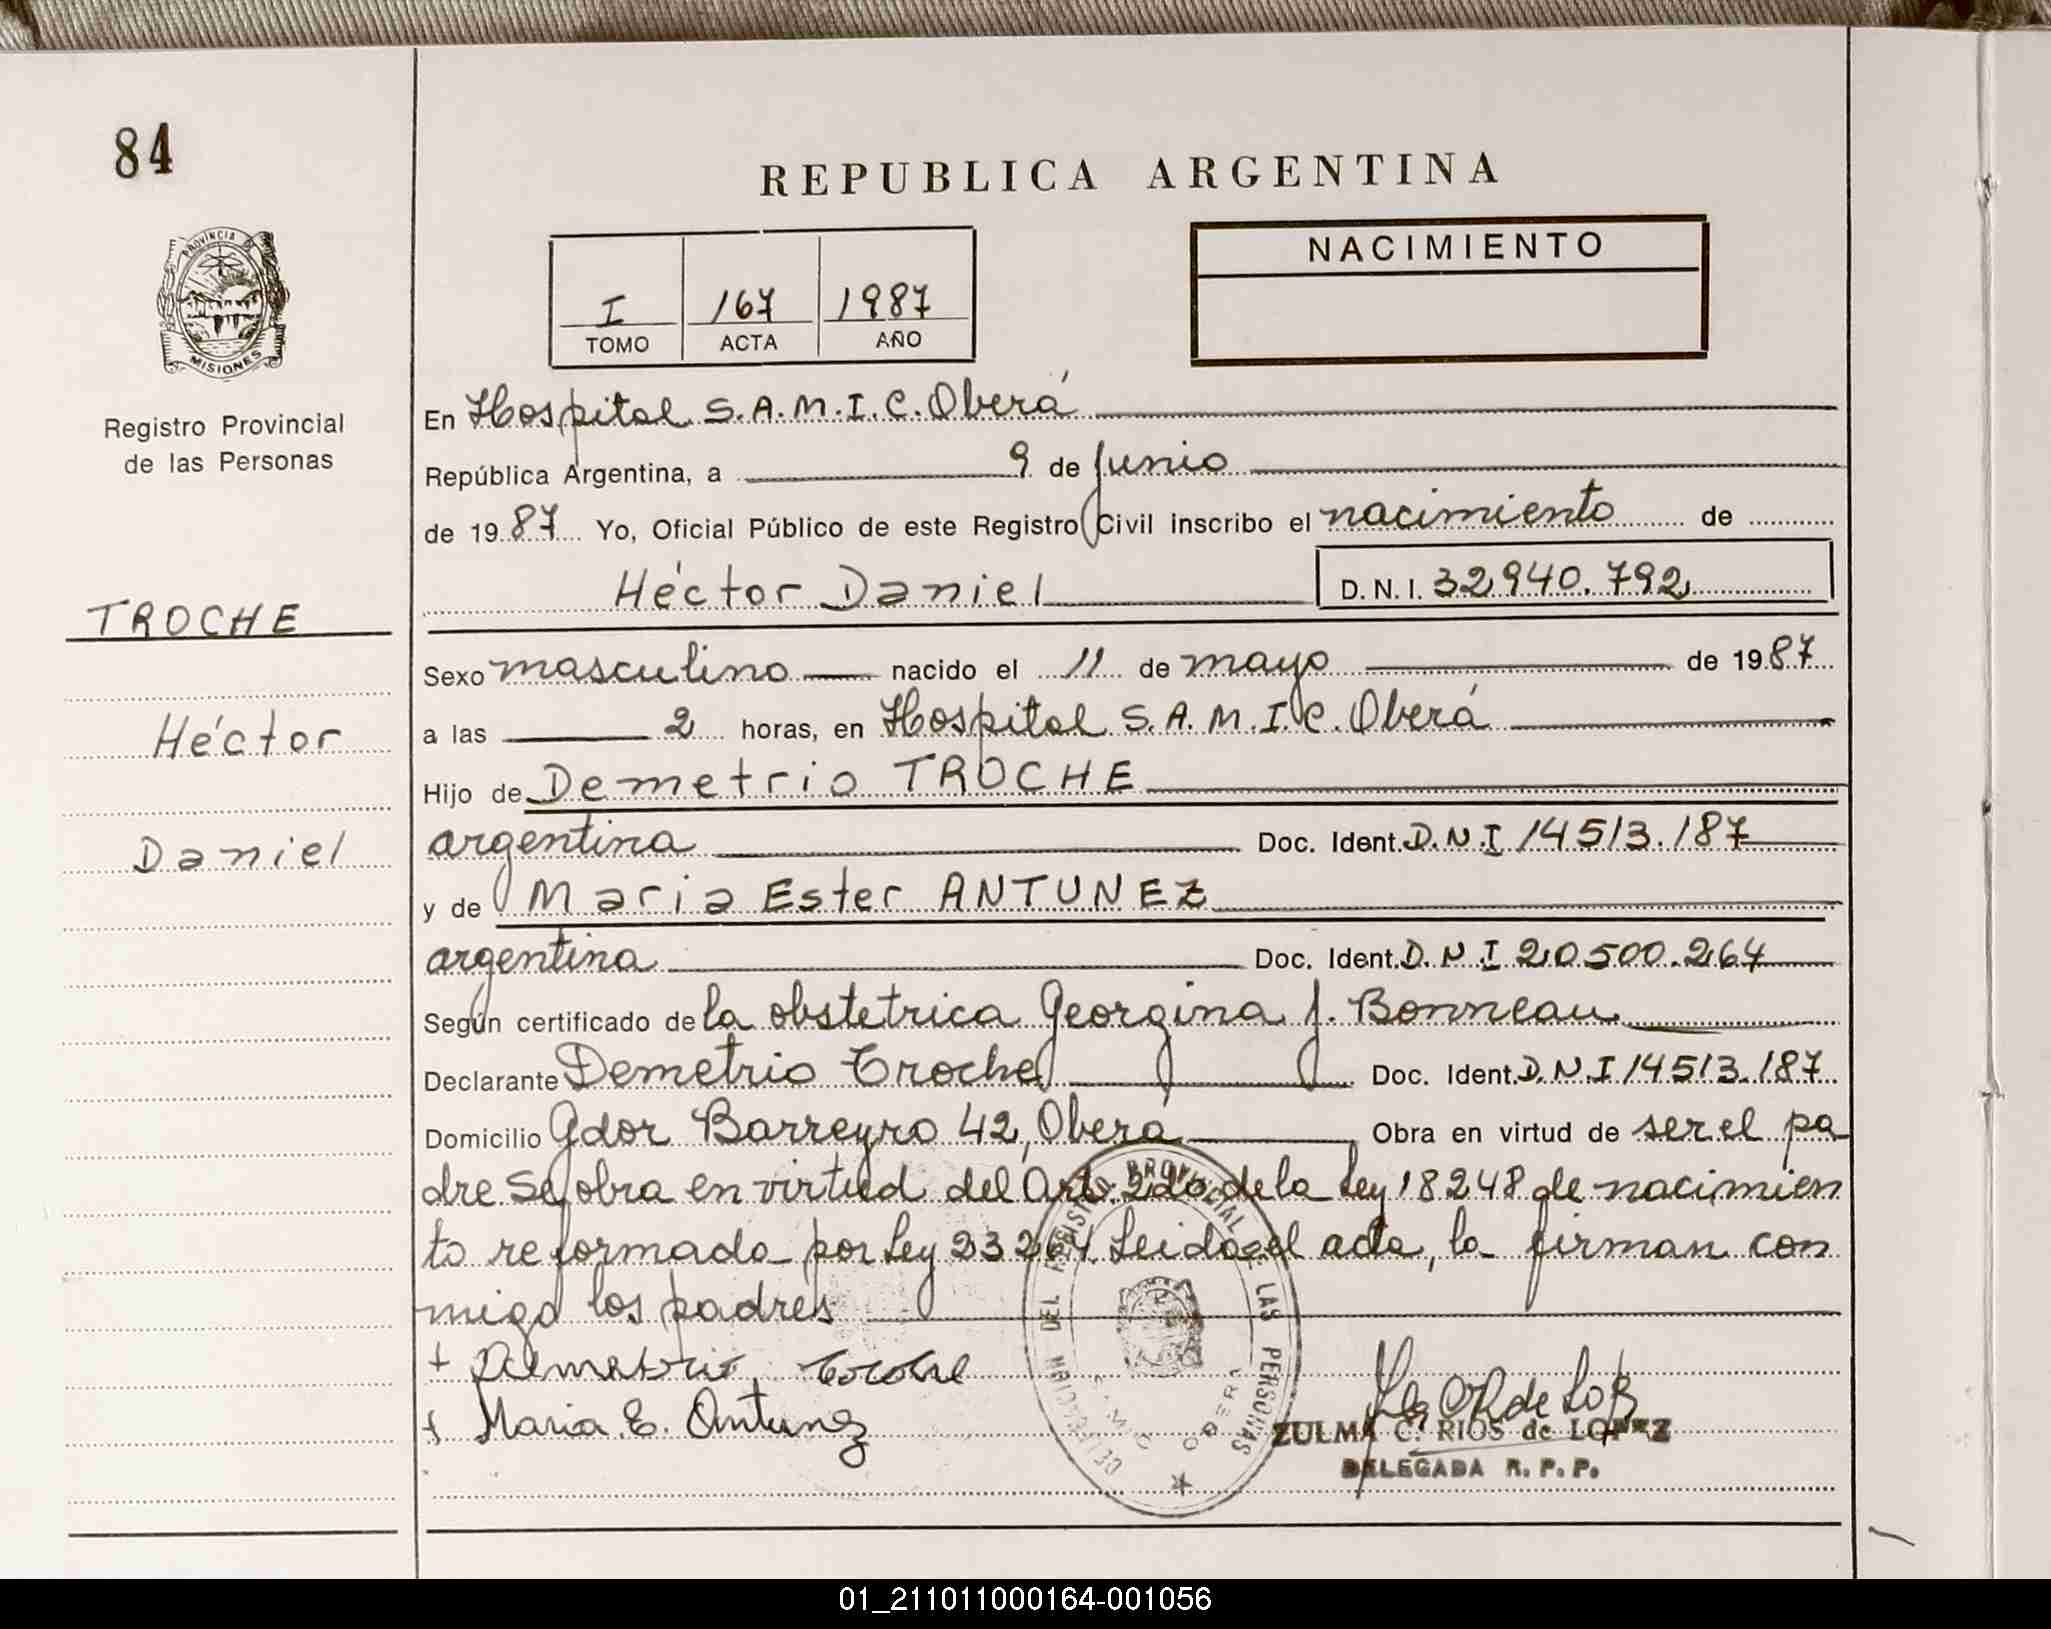 84
REPUBLICA ARGENTINA
NACIMIENTO
I 167 1987
TOMO ACTA AÑO
PROVINCIA DE
MISIONES
Registro Provincial
de las Personas
TROCHE
Héctor
Daniel
En Hospital S.A.M.I.C. Oberá
República Argentina, a 9 de Junio
de 1987 Yo, Oficial Público de este Registro Civil inscribo el nacimiento de
Héctor Daniel D.N.I. 32940.792
Sexo masculino nacido el 11 de mayo de 1987
a las 2 horas, en Hospital S.A.M.I.C. Oberá
Hijo de Demetrio TROCHE
argentina Doc. Ident. D.N.I 14513.187
y de Maria Ester ANTUNEZ
argentina Doc. Ident. D.N.I 20500.264
Según certificado de la obstetrica Georgina J. Bonneau
Declarante Demetrio Troche Doc. Ident. D.N.I 14513.187
Domicilio Gdor Barreyro 42, Oberá Obra en virtud de ser el pa
dre Se obra en virtud del Art. 2do de la Ley 18248 de nacimien
to reformada por Ley 23264. Leida el acta, la firman con
migo los padres
+ Demetrio Troche
+ Maria E. Antunez
DELEGACION DEL REGISTRO PROVINCIAL DE LAS PERSONAS
SAMIC OBERA
ZULMA C. RIOS de LOPEZ
DELEGADA R.P.P.
01_211011000164-001056